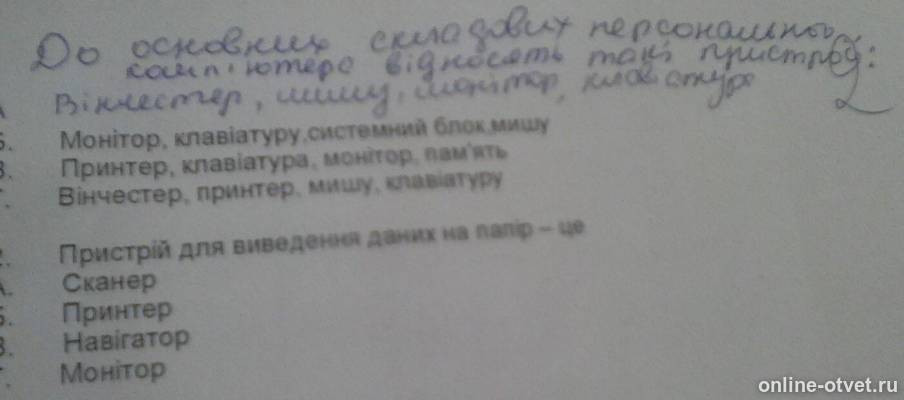 До основних складових персональног
комп'ютера відносять такі пристрої:
А Вінчестер, мишу, монітор, клавіатура
Б. Монітор, клавіатуру,системний блок,мишу
В. Принтер, клавіатура, монітор, пам'ять
Г. Вінчестер, принтер, мишу, клавіатуру
2. Пристрій для виведення даних на папір – це
А. Сканер
Б. Принтер
В. Навігатор
Г. Монітор
online-otvet.ru